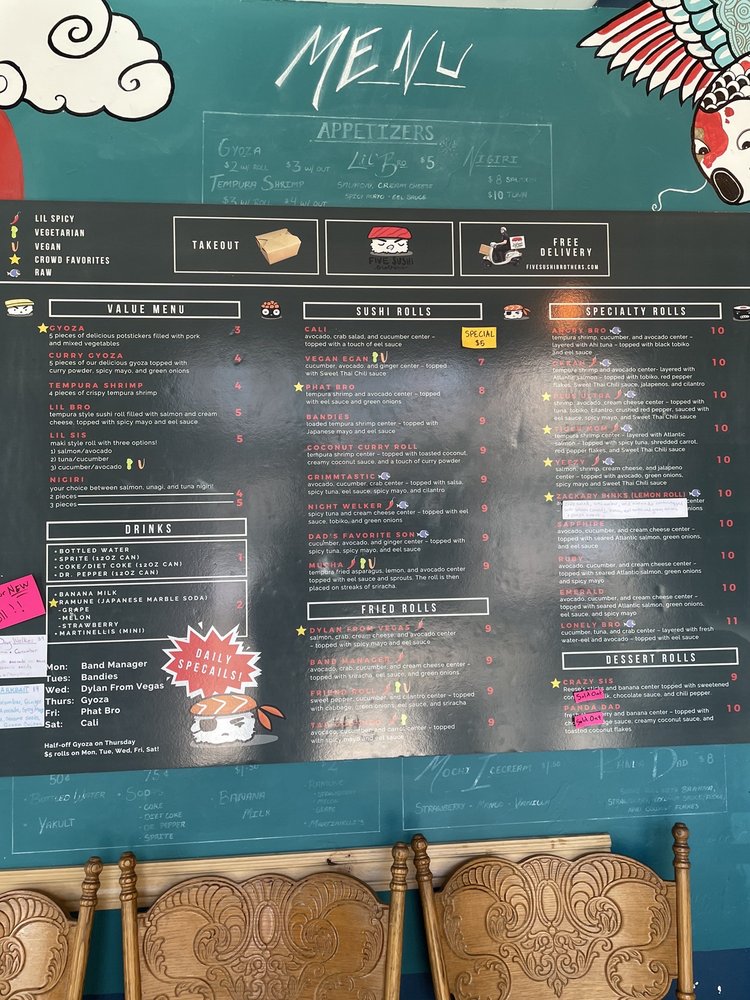 MENU
APPETIZERS
GYOZA
$2 W/ ROLL $3 W/ OUT
TEMPURA SHRIMP
$3 W/ ROLL $4 W/ OUT
LIL' BRO $5
SALMON, CREAM CHEESE
SPICY MAYO - EEL SAUCE
NIGIRI
$8 SALMON
$10 TUNA
LIL SPICY
VEGETARIAN
VEGAN
CROWD FAVORITES
RAW
TAKEOUT
FIVE SUSHI
FREE
DELIVERY
FIVESUSHIBROTHERS.COM
VALUE MENU
GYOZA 3
5 pieces of delicious potstickers filled with pork
and mixed vegetables
CURRY GYOZA 4
5 pieces of our delicious gyoza topped with
curry powder, spicy mayo, and green onions
TEMPURA SHRIMP 4
4 pieces of crispy tempura shrimp
LIL BRO 5
tempura style sushi roll filled with salmon and cream
cheese, topped with spicy mayo and eel sauce
LIL SIS 5
maki style roll with three options!
1) salmon/avocado
2) tuna/cucumber
3) cucumber/avocado
NIGIRI
your choice between salmon, unagi, and tuna nigiri!
2 pieces 4
3 pieces 5
DRINKS
• BOTTLED WATER
• SPRITE (12OZ CAN)
• COKE/DIET COKE (12OZ CAN)
• DR. PEPPER (12OZ CAN)
1
• BANANA MILK
RAMUNE (JAPANESE MARBLE SODA)
-GRAPE
-MELON
-STRAWBERRY
• MARTINELLIS (MINI)
2
Mon: Band Manager
Tues: Bandies
Wed: Dylan From Vegas
Thurs: Gyoza
Fri: Phat Bro
Sat: Cali
DAILY
SPECAILS!
Half-off Gyoza on Thursday
$5 rolls on Mon, Tue, Wed, Fri, Sat!
SUSHI ROLLS
CALI
avocado, crab salad, and cucumber center -
topped with a touch of eel sauce
SPECIAL
$5
VEGAN EGAN 7
avocado, cucumber, and ginger center - topped
with Sweet Thai Chili sauce
PHAT BRO 8
tempura shrimp and avocado center - topped
with eel sauce and green onions
BANDIES 9
loaded tempura shrimp center - topped with
Japanese mayo and eel sauce
COCONUT CURRY ROLL 9
tempura shrimp center - topped with toasted coconut,
creamy coconut sauce, and a touch of curry powder
GRIMMTASTIC 9
avocado, cucumber, crab center - topped with salsa,
spicy tuna, eel sauce, spicy mayo, and cilantro
NIGHT WELKER 9
spicy tuna and cream cheese center - topped with eel
sauce, tobiko, and green onions
DAD'S FAVORITE SON 9
cucumber, avocado, and ginger center - topped with
spicy tuna, spicy mayo, and eel sauce
MUSHA 9
tempura fried asparagus, lemon, and avocado center
topped with eel sauce and sprouts. The roll is then
placed on streaks of sriracha.
FRIED ROLLS
DYLAN FROM VEGAS 9
salmon, crab, cream cheese, and avocado center
- topped with spicy mayo and eel sauce
BAND MANAGER 9
avocado, crab, cream cheese, and cucumber center -
topped with sriracha, eel sauce, and green onions
FRIEND ROLL 9
sweet pepper, cucumber, and cilantro center - topped
with cabbage, green onions, eel sauce, and sriracha
9
avocado, cucumber, and carrot center - topped
with spicy mayo and eel sauce
SPECIALTY ROLLS
ANGRY BRO 10
tempura shrimp, cucumber, and avocado center -
layered with Ahi tuna - topped with black tobiko
and eel sauce
10
tempura shrimp and avocado center- layered with
Atlantic salmon - topped with tobiko, red pepper
flakes, Sweet Thai Chili sauce, jalapenos, and cilantro
PLUS ULTRA 10
shrimp, avocado, cream cheese center - topped with
tuna, tobiko, cilantro, crushed red pepper, sauced with
eel sauce, spicy mayo, and Sweet Thai Chili sauce
TIGER MOM 10
tempura shrimp center - layered with Atlantic
salmon - topped with spicy tuna, shredded carrot,
red pepper flakes, and Sweet Thai Chili sauce
YEEZY 10
salmon, shrimp, cream cheese, and jalapeno
center - topped with avocado, green onions,
spicy mayo and Sweet Thai Chili sauce
ZACKARY BINKS (LEMON ROLL) 10
center
SAPPHIRE 10
avocado, cucumber, and cream cheese center -
topped with seared Atlantic salmon, green onions,
and eel sauce
RUBY 10
avocado, cucumber, and cream cheese center -
topped with seared Atlantic salmon, green onions,
and spicy mayo
EMERALD 10
avocado, cucumber, and cream cheese center -
topped with seared Atlantic salmon, green onions,
eel sauce, and spicy mayo
LONELY BRO 11
cucumber, tuna, and crab center - layered with fresh
water-eel and avocado - topped with eel sauce
DESSERT ROLLS
CRAZY SIS 9
Reese's sticks and banana center topped with sweetened
milk, chocolate sauce, and chili pepper.
Sold Out
PANDA DAD 10
Sold Out
fudge sauce, creamy coconut sauce, and
toasted coconut flakes
50¢
• BOTTLED WATER
YAKULT
75¢
• SODA
- COKE
- DIET COKE
- DR. PEPPER
SPRITE
BANANA
MILK
RAMUNE
MOCHI ICECREAM
STRAWBERRY - MANGO - VANILLA
PANDA DAD $8